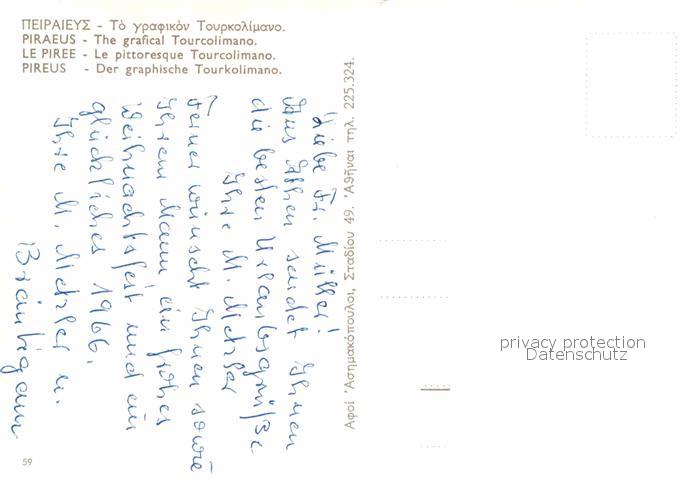 ΠΕΙΡΑΙΕΥΣ - Τὸ γραφικὸν Τουρκολίμανο.
PIRAEUS - The grafical Tourcolimano.
LE PIREE - Le pittoresque Tourcolimano.
PIREUS - Der graphische Tourkolimano.
Liebe Fr. Müller!
Aus Athen sendet Ihnen
die besten Urlaubsgrüße
Ihre M. Metzler
Ferner wünscht Ihnen sowie
Ihrem Mann ein frohes
Weihnachtsfest und ein
glückliches 1966.
Ihre M. Metzler u.
Bräutigam
Αφοί Ἀσημακόπουλοι, Σταδίου 49. Ἀθῆναι τηλ. 225.324.
privacy protection
Datenschutz
59